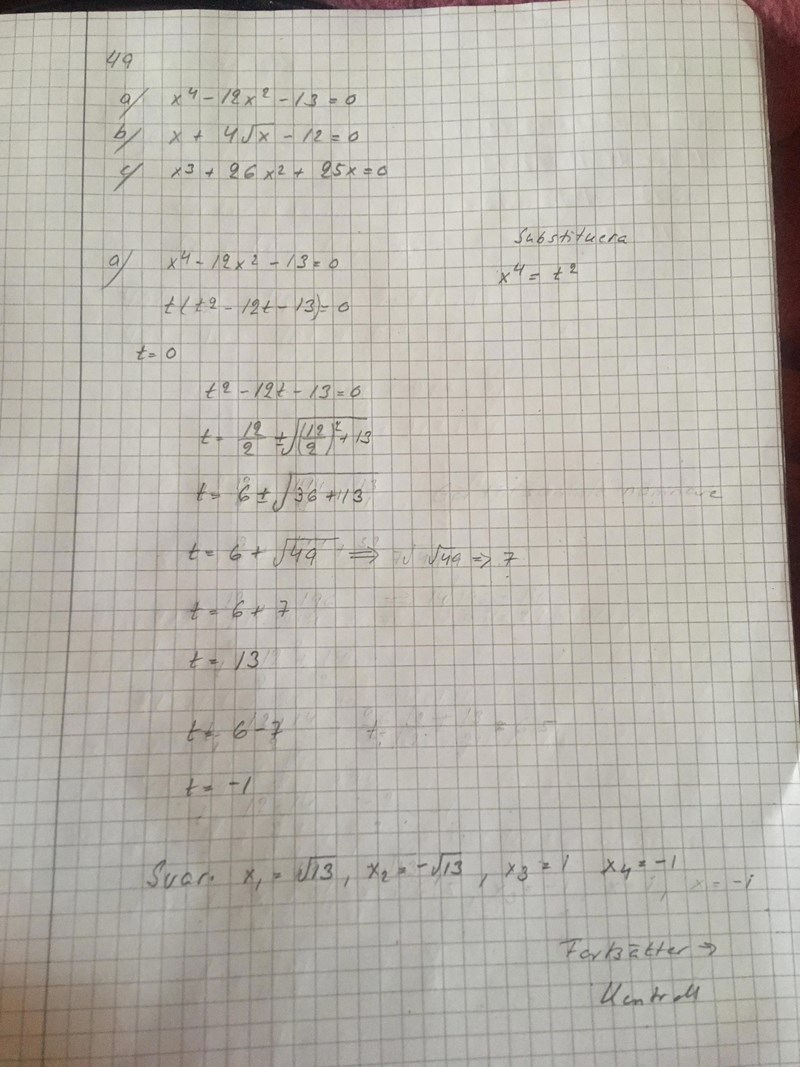 49
a) x⁴ - 12x² - 13 = 0
b) x + 4√x - 12 = 0
c) x³ + 26x² + 25x = 0
Substituera
a) x⁴ - 12x² - 13 = 0
x⁴ = t²
t(t² - 12t - 13) = 0
t = 0
t² - 12t - 13 = 0
t = 12/2 ± √((12/2)² + 13)
t = 6 ± √(36 + 13)
t = 6 + √49 ⇒ √49 ⇒ 7
t = 6 + 7
t = 13
t = 6 - 7
t = -1
Svar: x₁ = √13, x₂ = -√13, x₃ = 1 x₄ = -1
i, x = -i
Fortsätter →
Kontroll